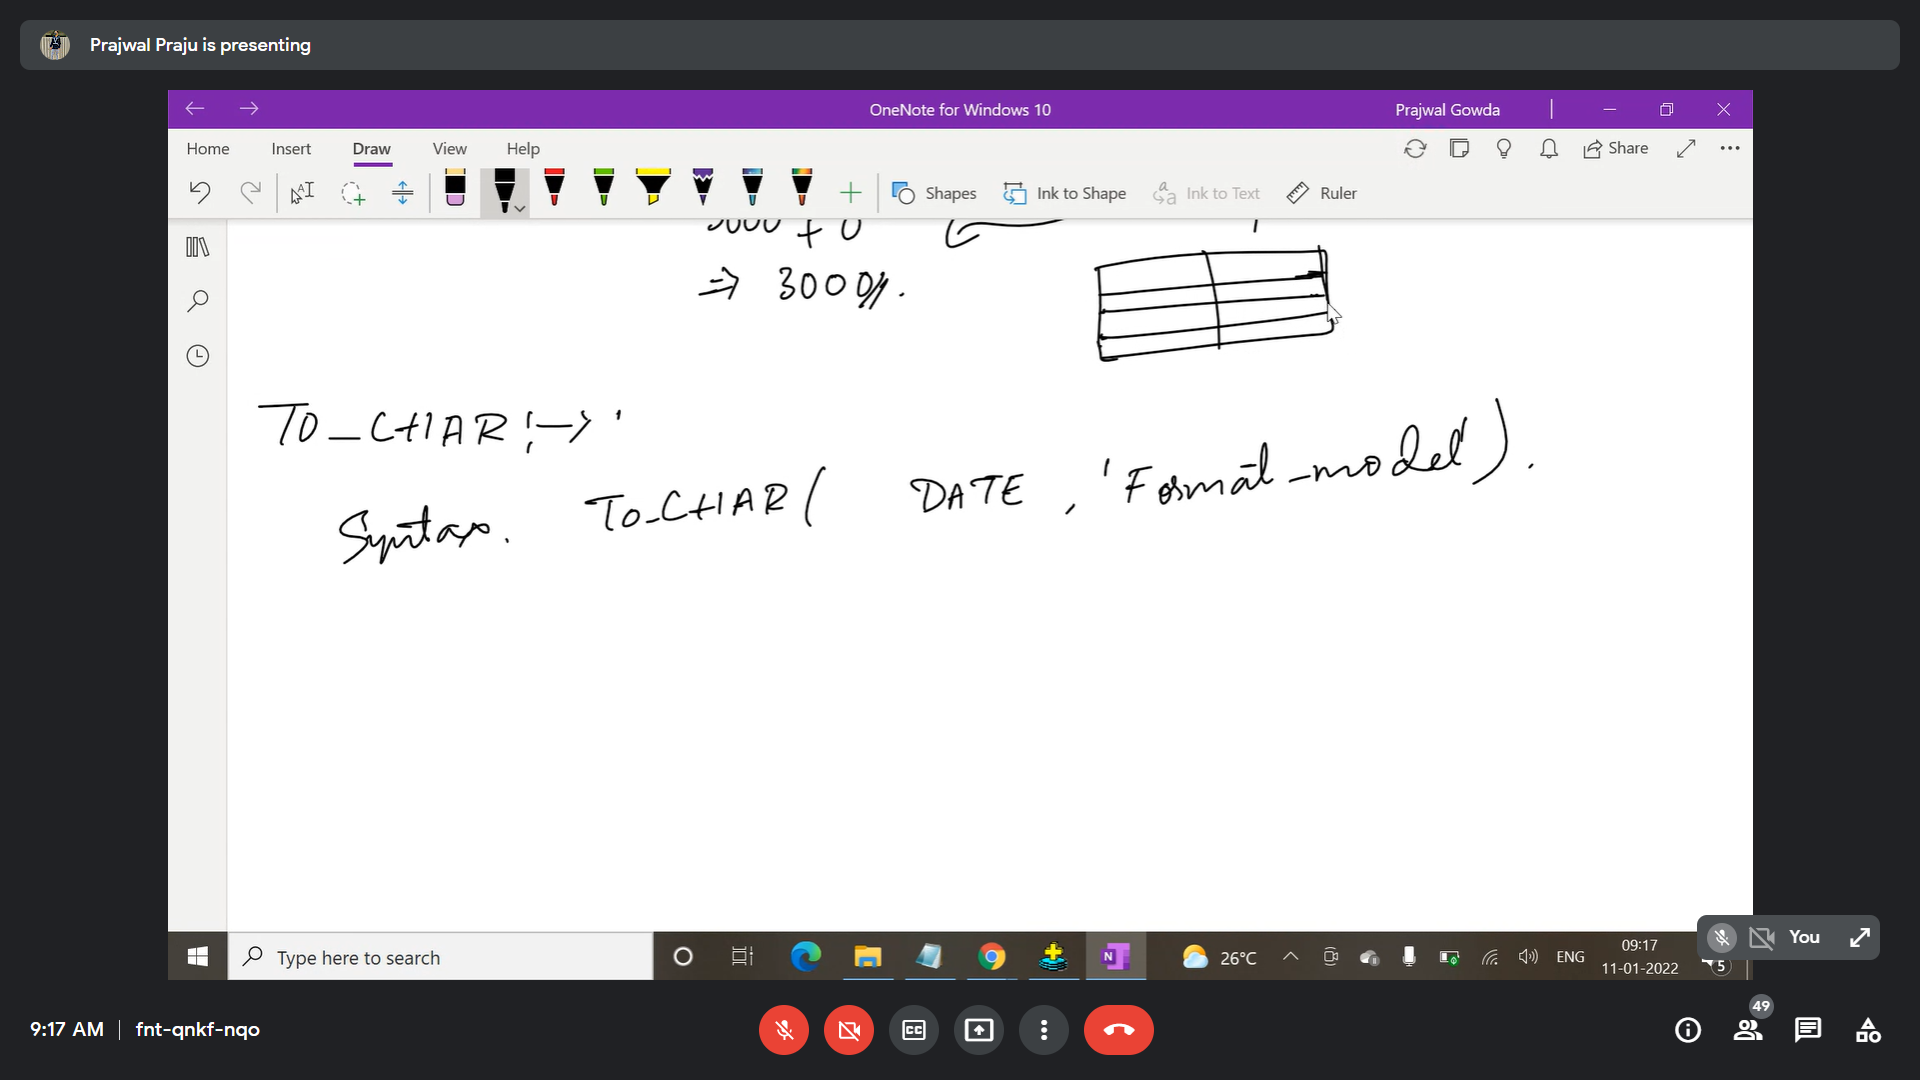 Prajwal Praju is presenting
OneNote for Windows 10
Prajwal Gowda
Home Insert Draw View Help
Share
Shapes Ink to Shape Ink to Text Ruler
3000 + 0
⇒ 3000//.
TO_CHAR :→ '
Syntax. TO_CHAR ( DATE , 'Format_model' ) .
Type here to search
N
26°C
ENG
09:17
11-01-2022
5
You
9:17 AM | fnt-qnkf-nqo
CC
49